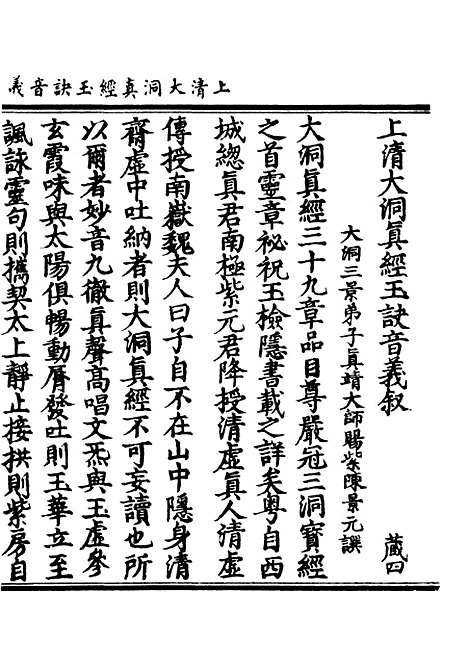 上清大洞真經玉訣音義
上清大洞真經玉訣音義叙　藏四
大洞三景弟子真靖大師賜紫陳景元譔
大洞真經三十九章品目尊嚴冠三洞寳經
之首靈章祕祝玉檢隱書載之詳矣粤自西
城總真君南極紫元君降授清虛真人清虛
傳授南嶽魏夫人曰子自不在山中隱身清
齋虛中吐納者則大洞真經不可妄讀也所
以爾者妙音九徹真聲高唱文炁與玉虛參
玄霞味與太陽俱暢動脣發吐則玉華立至
諷詠靈句則攜契太上靜止接拱則紫房自